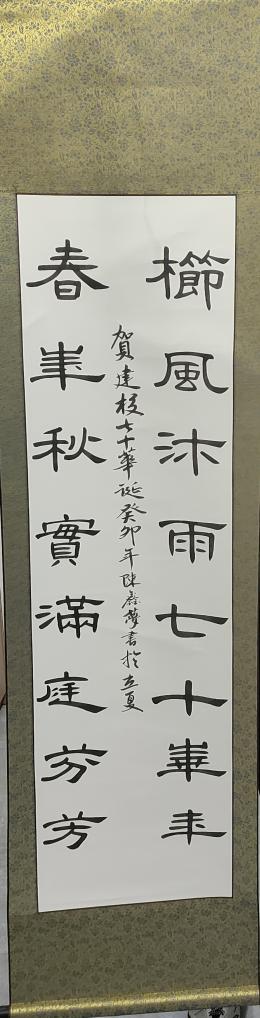 櫛風沐雨七十華年
春華秋實滿庭芬芳
賀建校七十華誕癸卯年陳書於立夏